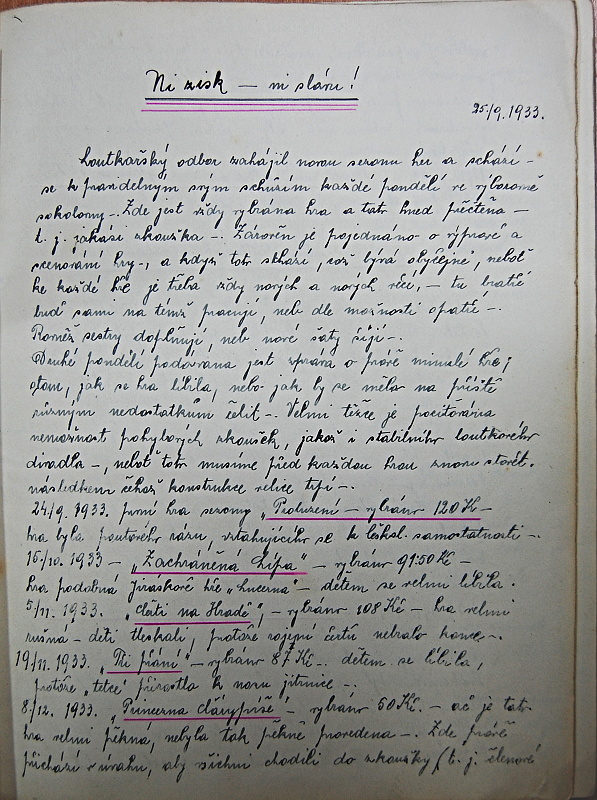 Ni zisk — ni slávu!
25/9. 1933.
Loutkařský odbor zahájil novou sezonu her a schází-
se k pravidelným svým schůzím každé pondělí ve výborovně
sokolovny-. Zde jest vždy vybrána hra a tato hned přečtena —
t. j. jakási zkouška -. Zároveň je pojednáno o výpravě a
scenování hry-, a když toto schází, což bývá obyčejně, neboť
ke každé hře je třeba vždy nových a nových věcí, — tu bratři
buď sami na témž pracují, neb dle možnosti opatří -.
Rovněž sestry doplňují, neb nové šaty šijí -.
Druhé pondělí podávána jest zpráva o právě minulé hře;
otom, jak se hra líbila, nebo jak by se mělo na příště
různým nedostatkům čelit -. Velmi těžce je pociťována
nemožnost pohybových zkoušek, jakož i stabilního loutkového
divadla -, neboť toto musíme před každou hrou znovu stavět.
následkem čehož konstrukce velice trpí -.
24/9. 1933. první hra sezony „Probuzení — vybráno 120 Kč —
hra byla poutového rázu, vztahujícího se k českosl. samostatnosti -.
15/10. 1933 — „Zachráněná Lípa" — vybráno 91·50 Kč —
hra podobná Jiráskově hře „Lucerna" — dětem se velmi líbila.
5/11. 1933. „Čerti na Hradě", — vybráno 108 Kč — hra velmi
rušná — děti tleskali, protože rojení čertů nebralo konce -.
19/11. 1933. „Tři přání" — vybráno 87 Kč -. dětem se líbila,
protože „tetce" přirostla k nosu jitrnice -.
8./12. 1933. „Princezna čárypíše" — vybráno 50 Kč. — ač je tato
hra velmi pěkná, nebyla tak pěkně provedena -. Zde právě
přichází v úvahu, aby všichni chodili do zkoušky (t. j. členové